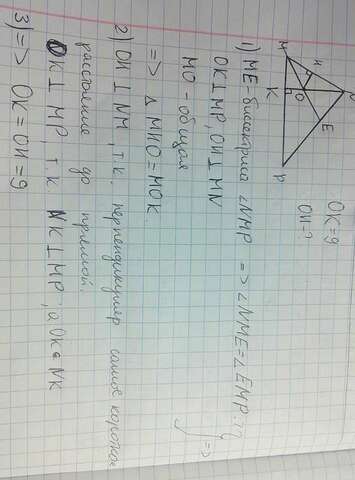 M H N
K O E
P
OK=9
OH-?
1) ME-биссектриса ∠NMP => ∠NME=∠EMP
OK⊥MP, OH⊥MN =>
MO-общая
=> △MHO=MOK
2) OH⊥NM, т.к. перпендикуляр самое короткое
расстояние до прямой.
OK⊥MP, т.к NK⊥MP, а OK∈NK
3) => OK=OH=9